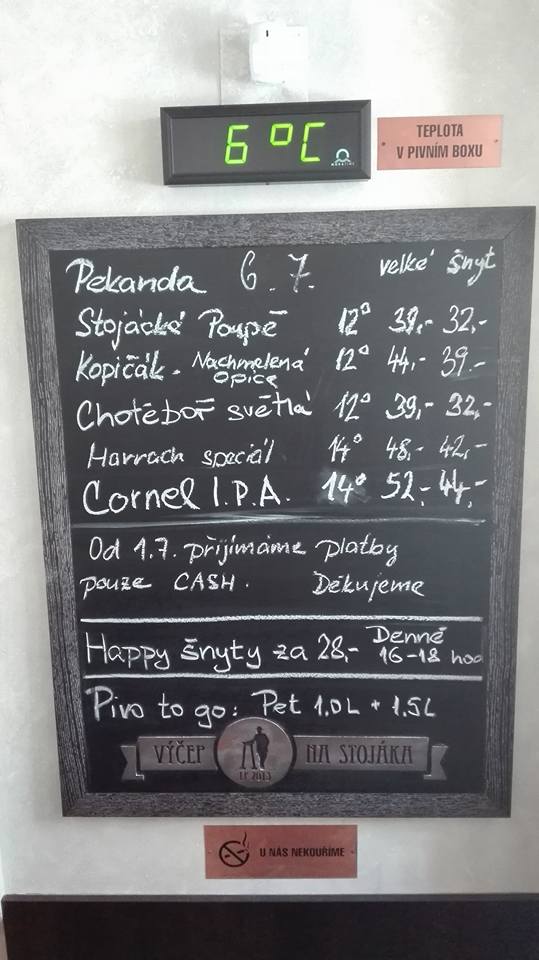 6 °C
TEPLOTA
V PIVNÍM BOXU
Pekanda 6.7. velké šnyt
Stojácké Poupě 12° 39,- 32,-
Kopičák - Nachmelená opice 12° 44,- 39.-
Chotěboř světlá 12° 39,- 32,-
Harrach speciál 14° 48,- 42,-
Cornel I.P.A. 14° 52,- 44,-
Od 1.7. přijímáme platby
pouze CASH. Děkujeme
Happy šnyty za 28,- Denně 16-18 hod
Pivo to go: Pet 1,0L + 1,5L
VÝČEP NA STOJÁKA
LP 2013
U NÁS NEKOUŘÍME